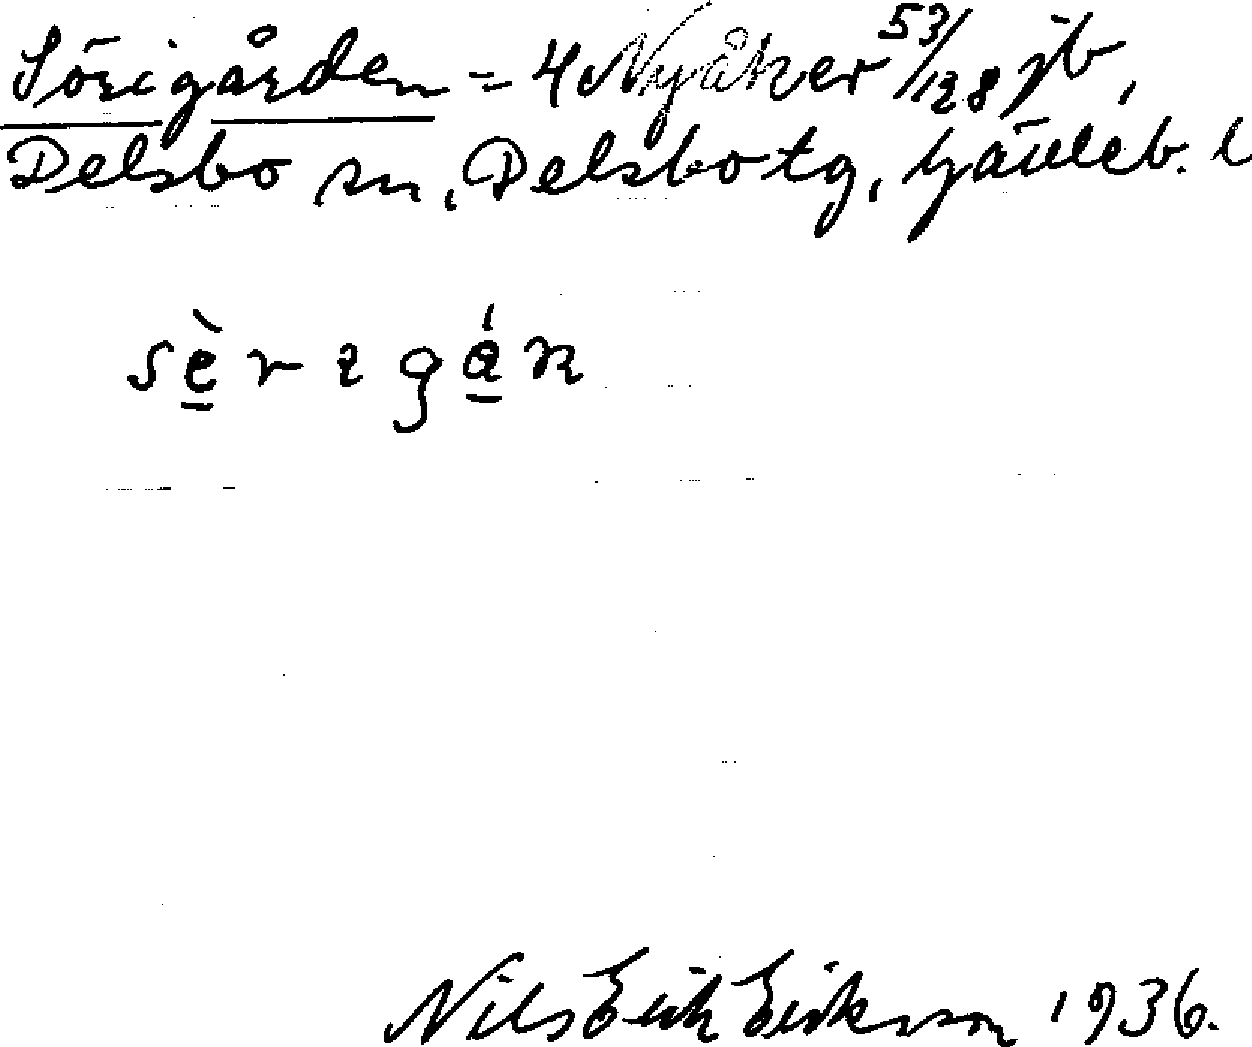 Sörigården = 4 Nyåker 53/128 jb,
Delsbo sn, Delsbo tg, Gävleb. l
sèrɪgán
Nils Erik Eriksson 1936.